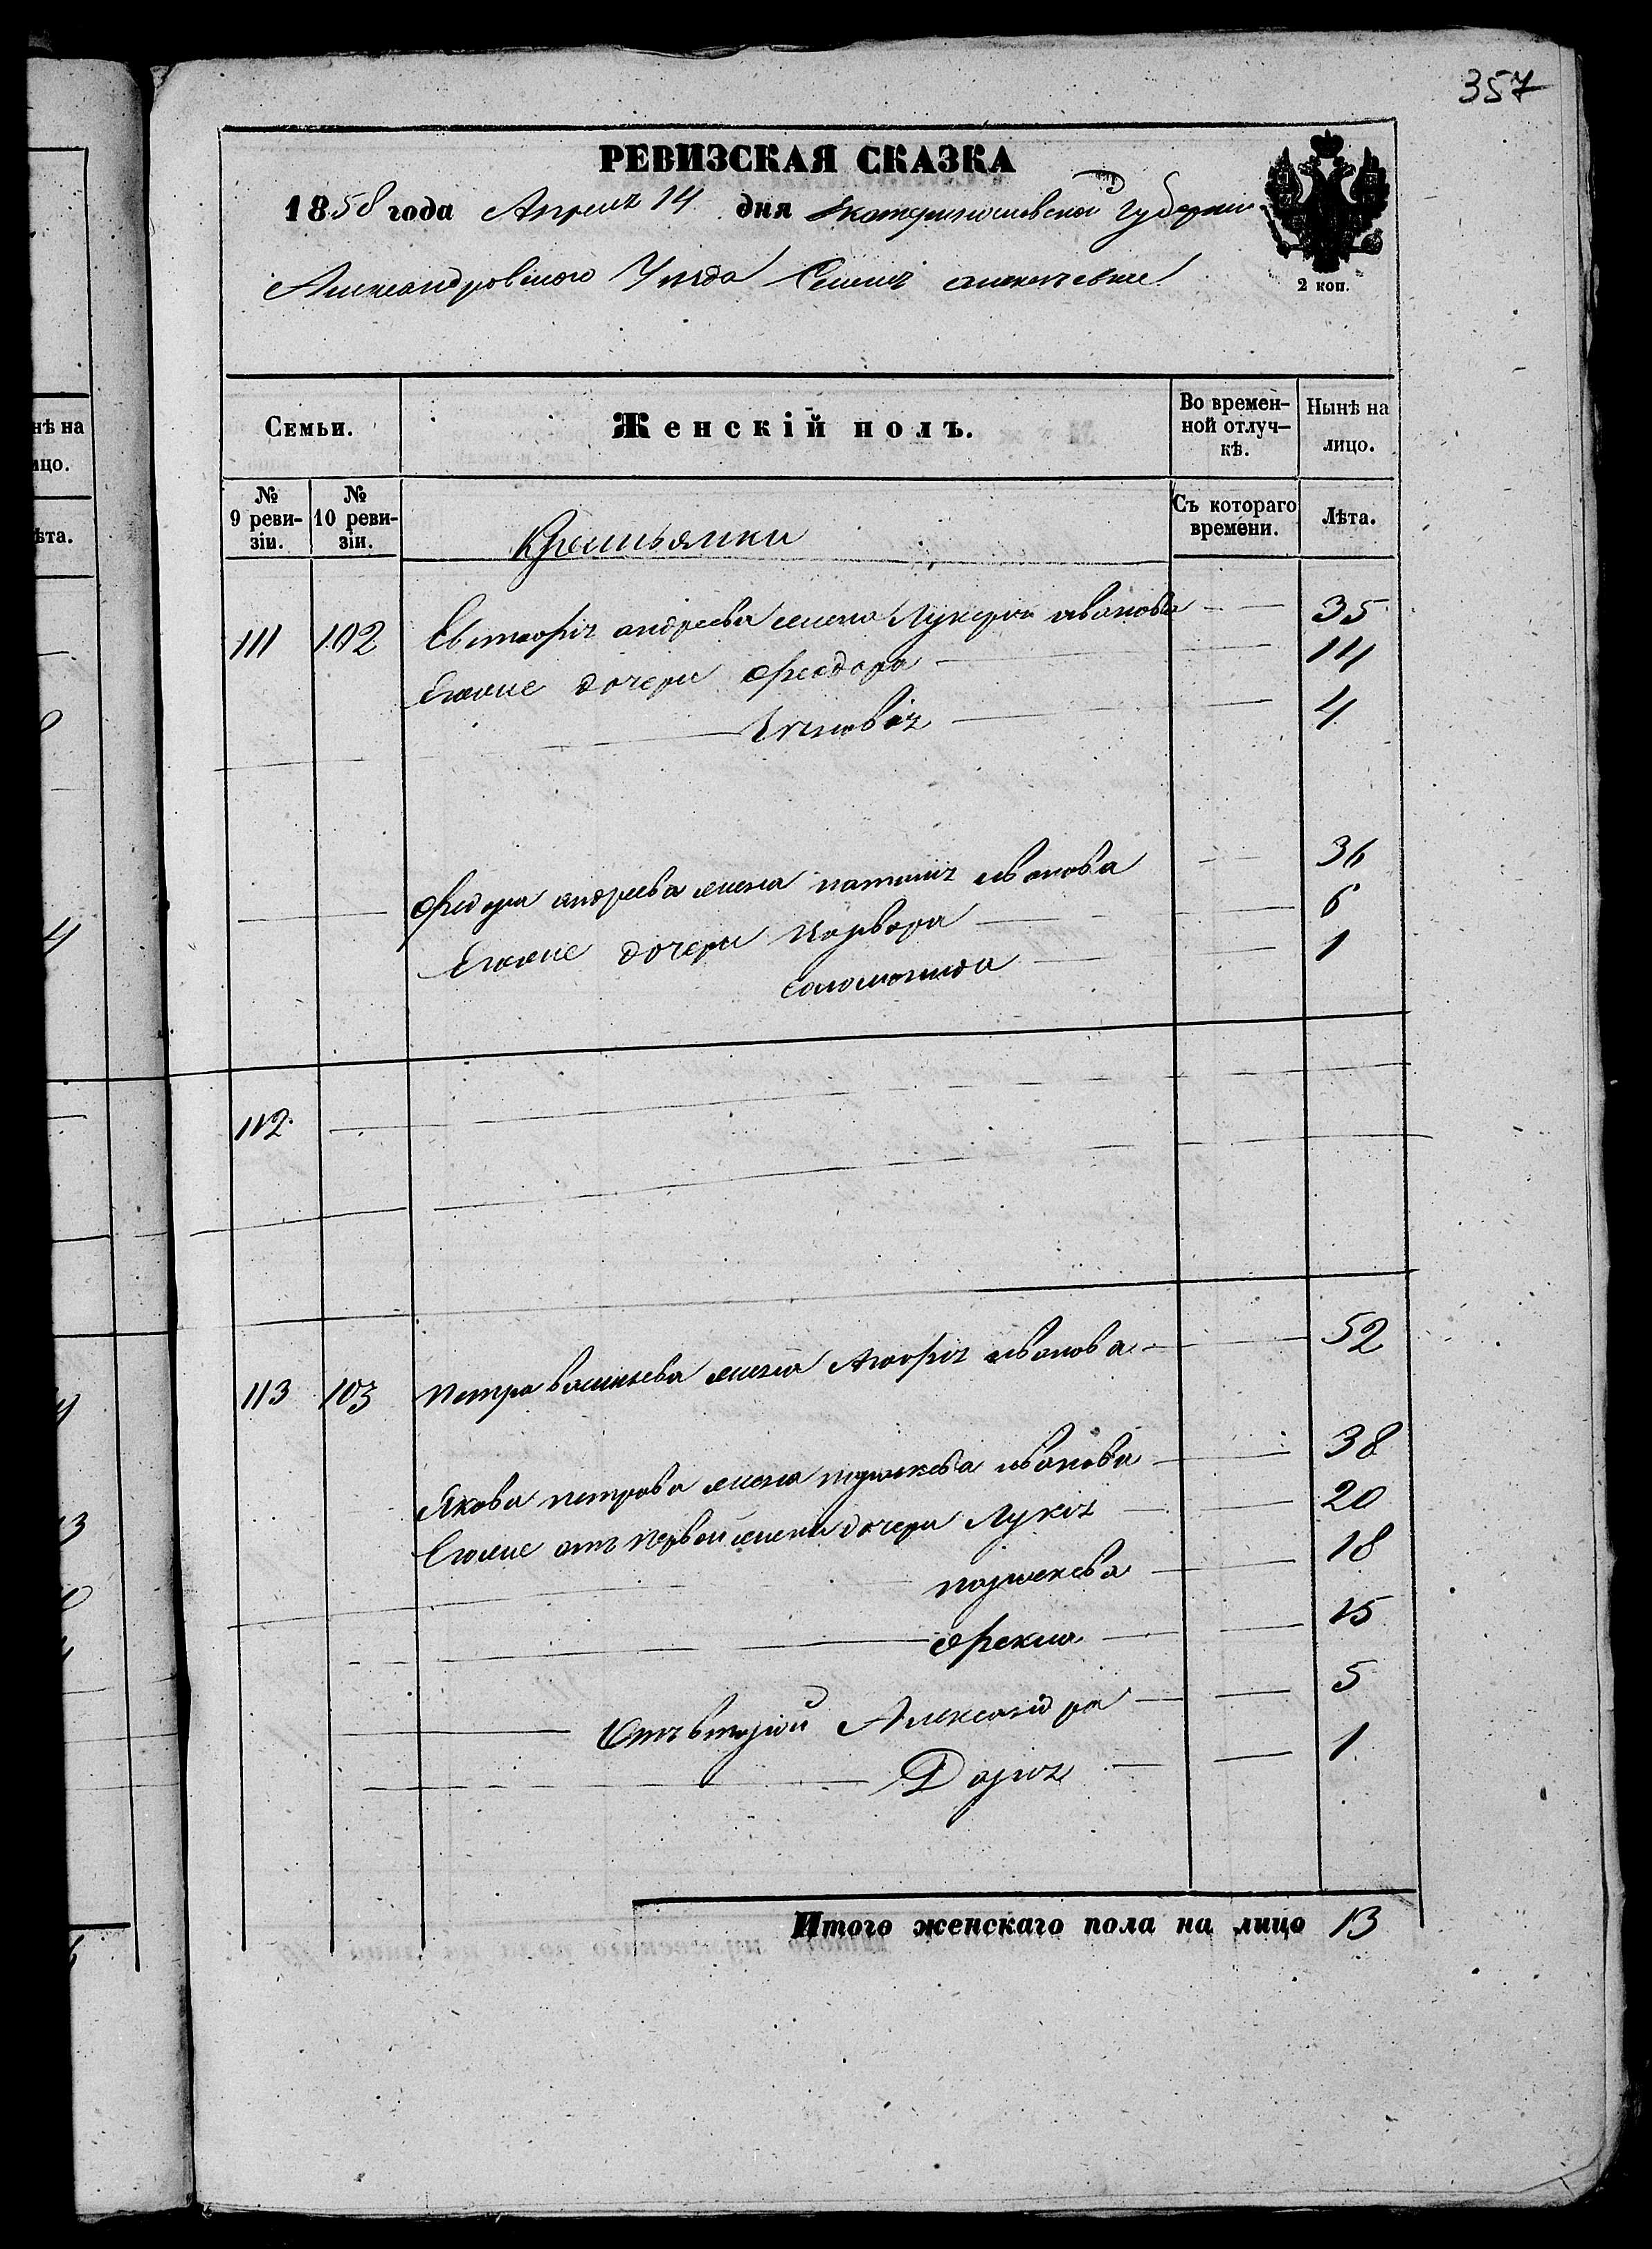 357
РЕВИЗСКАЯ СКАЗКА
1858 года Апреля 14 дня Екатеринославской Губернии
Александровского Уезда Села
2 коп.
Семьи.
Женскій полъ.
Во времен-
ной отлуч-
кѣ.
Нынѣ на
лицо.
№
9 реви-
зіи.
№
10 реви-
зіи.
Крестьянки
Съ котораго
времени.
Лѣта.
111 102 андреева жена Лукерья иванова 35
Егоже дочери феодора 14
Зеновия 4
Федора андреева жена иванова 36
Егоже дочери варвара 6
соломонида 1
112.
113 103 Петра васильева жена Агафия иванова 52
Якова петрова жена иванова 38
Егоже отъ первой жены дочери Лукия 20
18
Фекла 15
Отъ второй Александра 5
Дария 1
Итого женскаго пола на лицо 13
нѣ на
ицо.
ѣта.
4